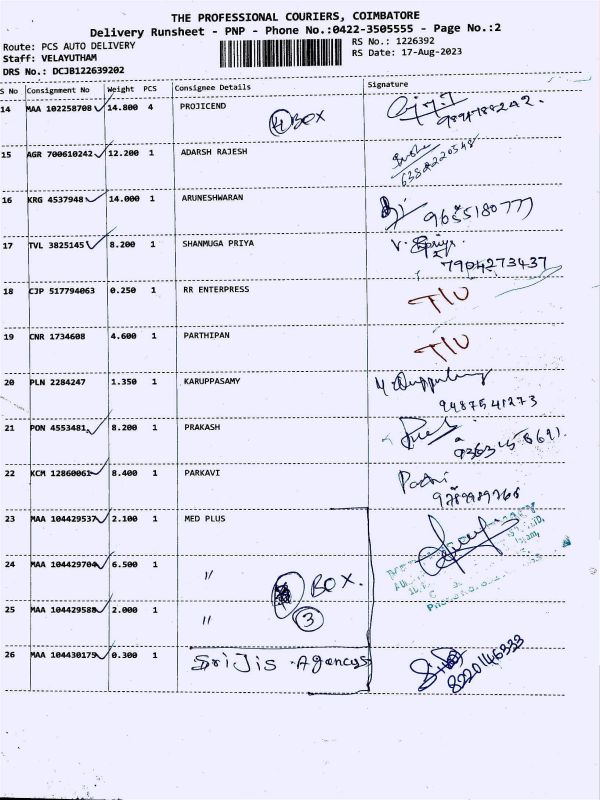 THE PROFESSIONAL COURIERS, COIMBATORE
Delivery Runsheet - PNP - Phone No.:0422-3505555 - Page No.:2
Route: PCS AUTO DELIVERY
RS No.: 1226392
Staff: VELAYUTHAM
RS Date: 17-Aug-2023
DRS No.: DCJB122639202
S No Consignment No Weight PCS Consignee Details Signature
14 MAA 102258708 14.800 4 PROJICEND
4 BOX
15 AGR 700610242 12.200 1 ADARSH RAJESH
16 KRG 4537948 14.000 1 ARUNESHWARAN
9655180777
17 TVL 3825145 8.200 1 SHANMUGA PRIYA
7904273437
18 CJP 517794063 0.250 1 RR ENTERPRESS T/U
19 CNR 1734608 4.600 1 PARTHIPAN T/U
20 PLN 2284247 1.350 1 KARUPPASAMY
9487541273
21 PON 4553481 8.200 1 PRAKASH
22 KCM 12860061 8.400 1 PARKAVI
23 MAA 104429537 2.100 1 MED PLUS
24 MAA 104429704 6.500 1 "
BOX.
25 MAA 104429588 2.000 1 "
3
26 MAA 104430179 0.300 1 SriJis Agencys
8220146323